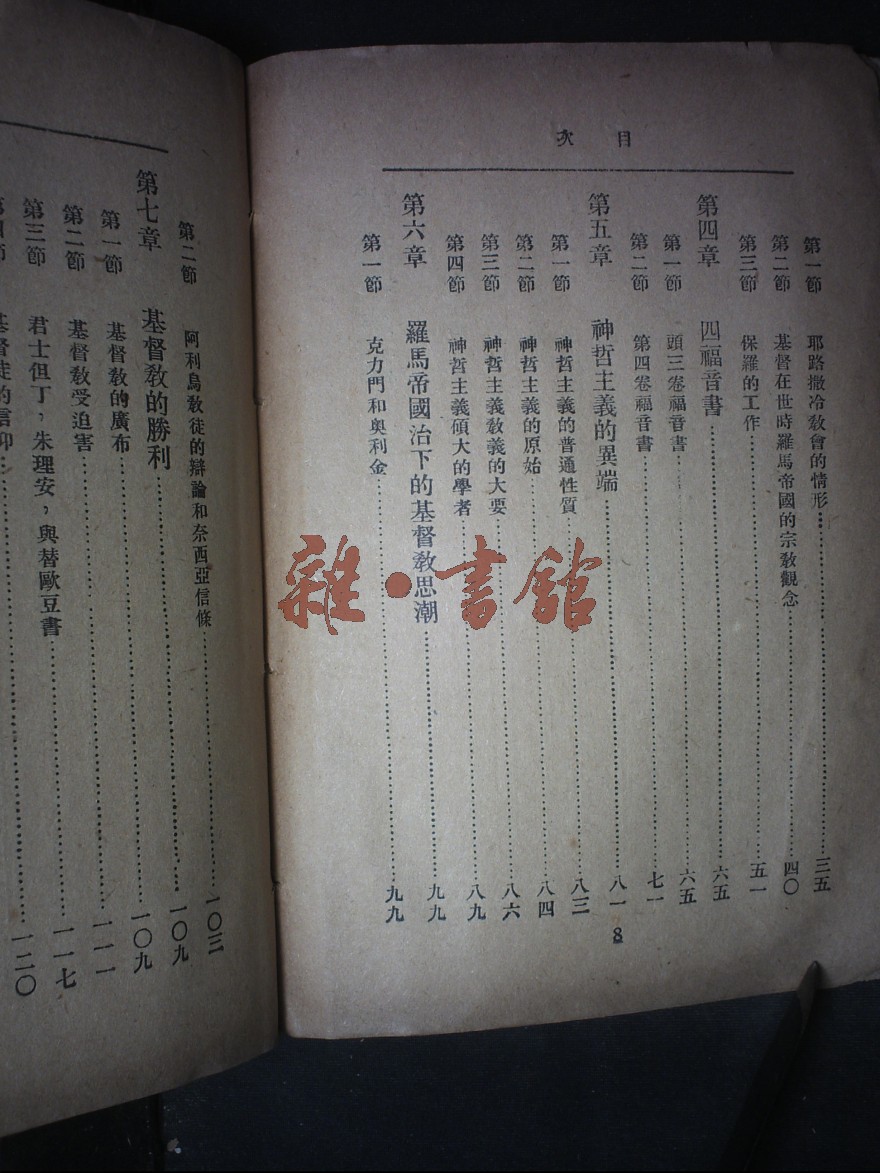 目次
第一節 耶路撒冷敎會的情形 三五
第二節 基督在世時羅馬帝國的宗敎觀念 四〇
第三節 保羅的工作 五一
第四章 四福音書 六五
第一節 頭三卷福音書 六五
第二節 第四卷福音書 七一
第五章 神哲主義的異端 八一
第一節 神哲主義的普通性質 八三
第二節 神哲主義的原始 八四
第三節 神哲主義敎義的大要 八六
第四節 神哲主義碩大的學者 八九
第六章 羅馬帝國治下的基督敎思潮 九九
第一節 克力門和奧利金 九九
8
第二節 阿利烏敎徒的辯論和奈西亞信條 一〇三
第七章 基督敎的勝利 一〇九
第一節 基督敎的廣布 一〇九
第二節 基督敎受迫害 一一一
第三節 君士但丁，朱理安，與替歐豆書 一一七
第四節 基督徒的信仰 一二〇
雜·書館